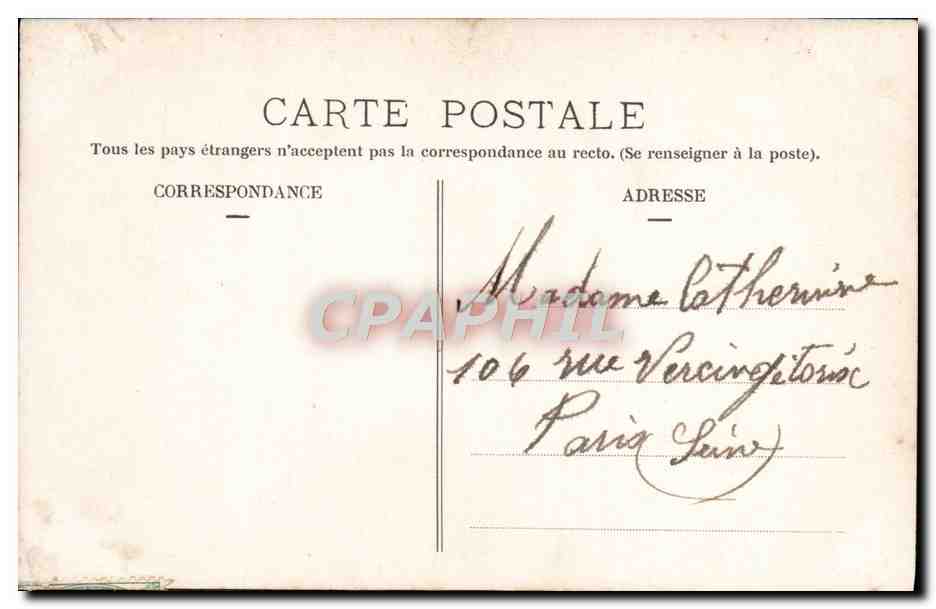 CARTE POSTALE
Tous les pays étrangers n'acceptent pas la correspondance au recto. (Se renseigner à la poste).
CORRESPONDANCE
ADRESSE
Madame Catherinne
106 rue Vercingétorix
Paris (Seine)
CPAPHIL